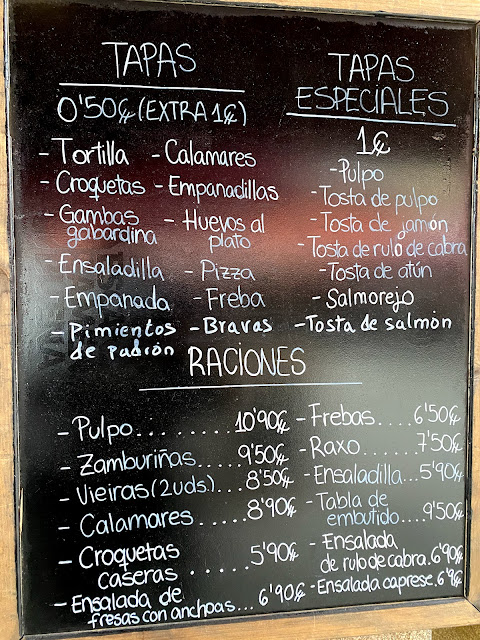 TAPAS
0'50€ (EXTRA 1€)
- Tortilla - Calamares
- Croquetas - Empanadillas
- Gambas gabardina - Huevos al plato
- Ensaladilla - Pizza
- Empanada - Freba
- Pimientos de padrón - Bravas
TAPAS
ESPECIALES
1€
- Pulpo
- Tosta de pulpo
- Tosta de jamón
- Tosta de rulo de cabra
- Tosta de atún
- Salmorejo
- Tosta de salmón
RACIONES
- Pulpo......... 10'90€
- Zamburiñas.... 9'50€
- Vieiras (2uds.)... 8'50€
- Calamares..... 8'90€
- Croquetas
caseras........ 5'90€
- Ensalada de
fresas con anchoas... 6'90€
- Frebas.....6'50€
- Raxo....... 7'50€
- Ensaladilla... 5'90€
- Tabla de
embutido....9'50€
- Ensalada
de rulo de cabra.6'90€
- Ensalada caprese.6'90€